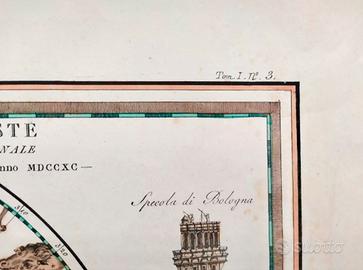 Tom. I. N.º 3.
STE
NALE
nno MDCCXC —
Specola di Bologna
310
320
subito